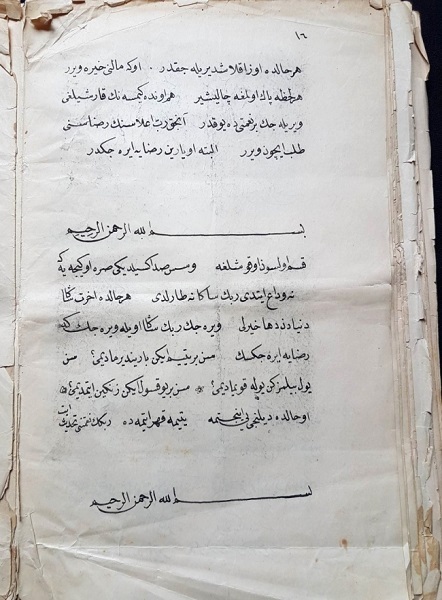 ١٦
هر حالده اوزاقلاشدیریله جقدر . اوکه مالنی خیره ویرر
هر لحظه پاك اولمغه چالیشیر هم اونده کیمسه نك قارشیلغی
ویریله جك بر نعمتی ده یوقدر آنجق رب اعلاسنك رضاسنی
طلب ایچون ویرر البته او یارین رضایه ایره جکدر
بسم الله الرحمن الرحیم
قسم اولسون او قوشلغه و سر صدا کسیلدیکی صره او کیجه یه که
نه وداع ایتدی ربك سکا نه طارلدی هر حالده آخرت سکا
دنیادن دها خیرلی ویره جك ربك سکا اویله ویره جك که
رضایه ایره جکسك سن بر یتیم ایکن باریندیرمادیمی؟ سن
یول بیلمز کن یوله قویمادیمی؟ * سن بر یوقسول ایکن زنکین ایتمدیمی؟ *
او حالده دیلنجی یی اینجتمه یتیمه قهر ایتمه ده ربکك نعمتنی تحدیث ایت
بسم الله الرحمن الرحیم